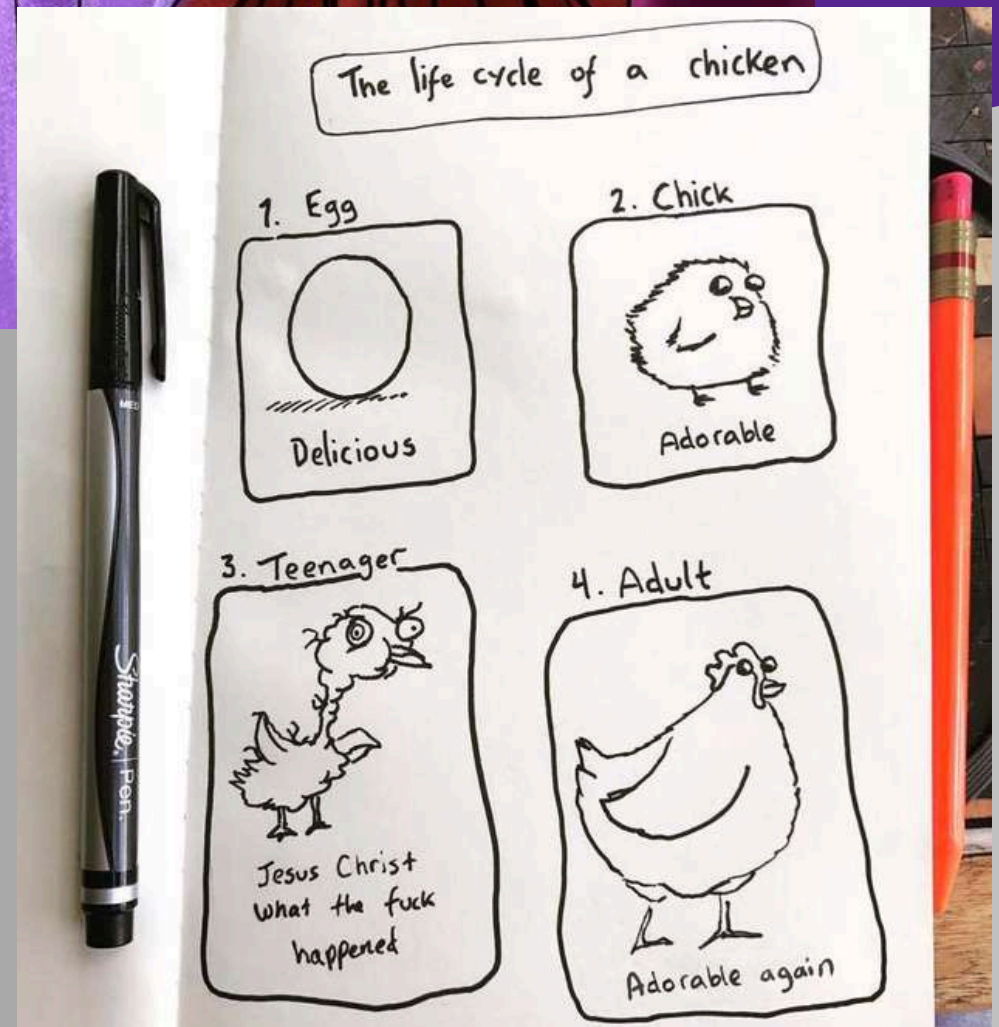 The life cycle of a chicken
1. Egg
Delicious
2. Chick
Adorable
3. Teenager
Jesus Christ
what the fuck
happened
4. Adult
Adorable again
MED
Sharpie. | Pen.